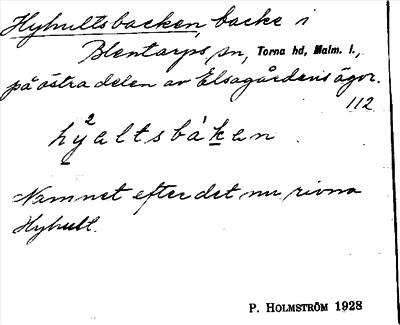 Hyhultsbacken, backe i
Blentarps sn, Torna hd, Malm. l.,
på östra delen av Elsagårdens ägor.
112.
hy²altsbàken
Namnet efter det nu rivna
Hyhult.
P. HOLMSTRÖM 1928